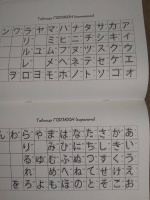 Таблица ГОДЗЮОН (катакана)
ン ワ ラ ヤ マ ハ ナ タ サ カ ア
リ ミ ヒ ニ チ シ キ イ
ル ユ ム フ ヌ ツ ス ク ウ
レ メ ヘ ネ テ セ ケ エ
ヲ ロ ヨ モ ホ ノ ト ソ コ オ
Таблица ГОДЗЮОН (хирагана)
ん わ ら や ま は な た さ か あ
り み ひ に ち し き い
る ゆ む ふ ぬ つ す く う
れ め へ ね て せ け え
を ろ よ も ほ の と そ こ お